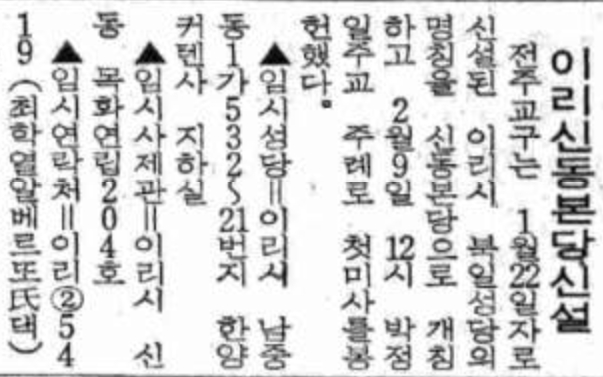 이리신동본당신설
전주교구는 1월22일자로
신설된 이리시 북일성당의
명칭을 신동본당으로 개칭
하고 2월9일 12시 박정
일주교 주례로 첫미사를봉
헌했다.
▲임시성당=이리시 남중
동1가532~21번지 한양
커텐사 지하실
▲임시사제관=이리시 신
동 목화연립204호
▲임시연락처=이리②54
19(최학열알베르또氏댁)